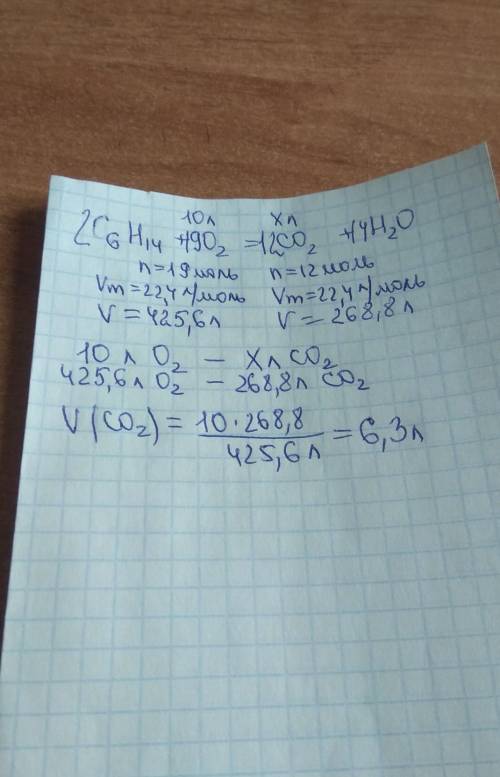 10л хл
2C₆H₁₄ +19O₂ =12CO₂ +14H₂O
n=19моль n=12моль
Vm=22,4 л/моль Vm=22,4 л/моль
V=425,6л V=268,8л
10 л O₂ — Xл CO₂
425,6л O₂ — 268,8л CO₂
V(CO₂) = 10·268,8 / 425,6л = 6,3л